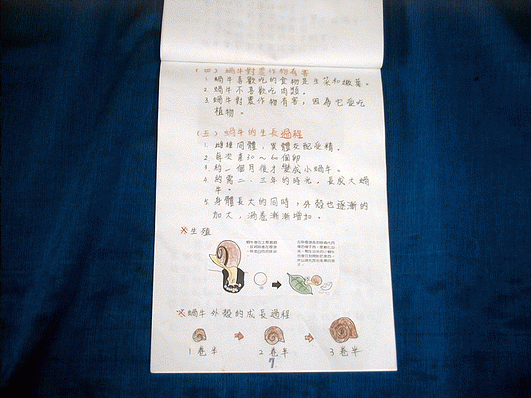 (四) 蝸牛對農作物有害
1. 蝸牛喜歡吃的食物是生菜和嫩葉。
2. 蝸牛不喜歡吃肉類。
3. 蝸牛對農作物有害,因為它愛吃
植物。
(五) 蝸牛的生長過程
1. 雌雄同體,異體交配受精。
2. 每次產30~60個卵
3. 約一個月後才變成小蝸牛。
4. 約需二、三年的時光,長成大蝸
牛。
5. 身體長大的同時,外殼也逐漸的
加大,渦卷漸漸增加。
※生殖
※蝸牛外殼的成長過程
1卷半 2卷半 3卷半
7